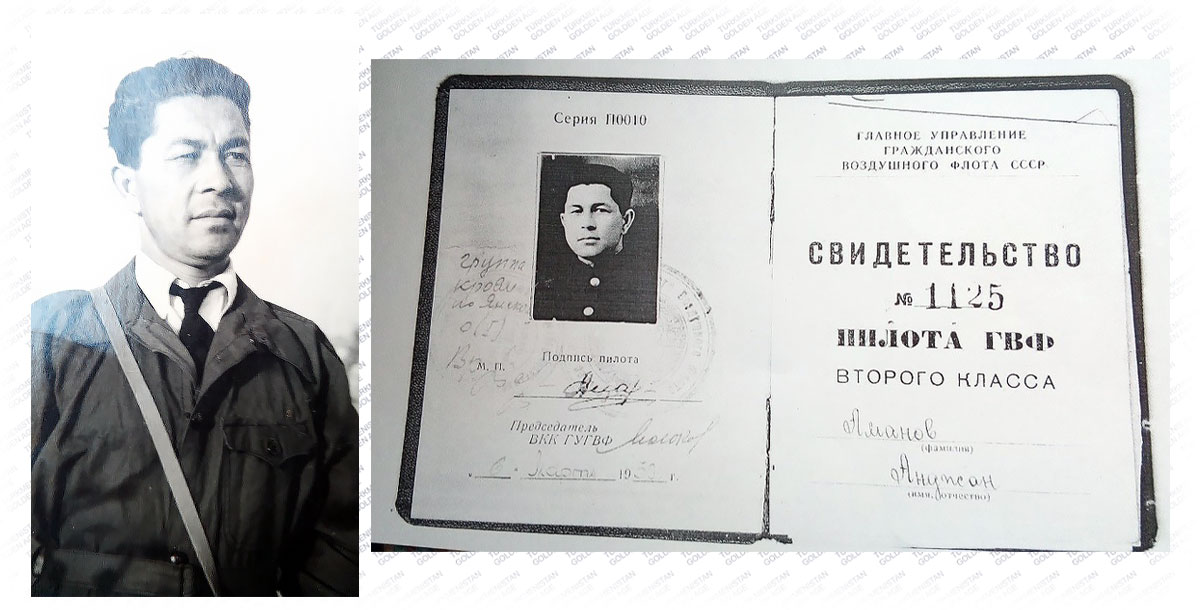 Серия П0010
группа
М. П.
Подпись пилота
Председатель
ВКК ГУГВФ
6 - Марта 19 г.
ГЛАВНОЕ УПРАВЛЕНИЕ
ГРАЖДАНСКОГО
ВОЗДУШНОГО ФЛОТА СССР
СВИДЕТЕЛЬСТВО
№ 1125
ПИЛОТА ГВФ
ВТОРОГО КЛАССА
Аманов
(фамилия)
(имя, отчество)
TURKMENISTAN
GOLDEN AGE